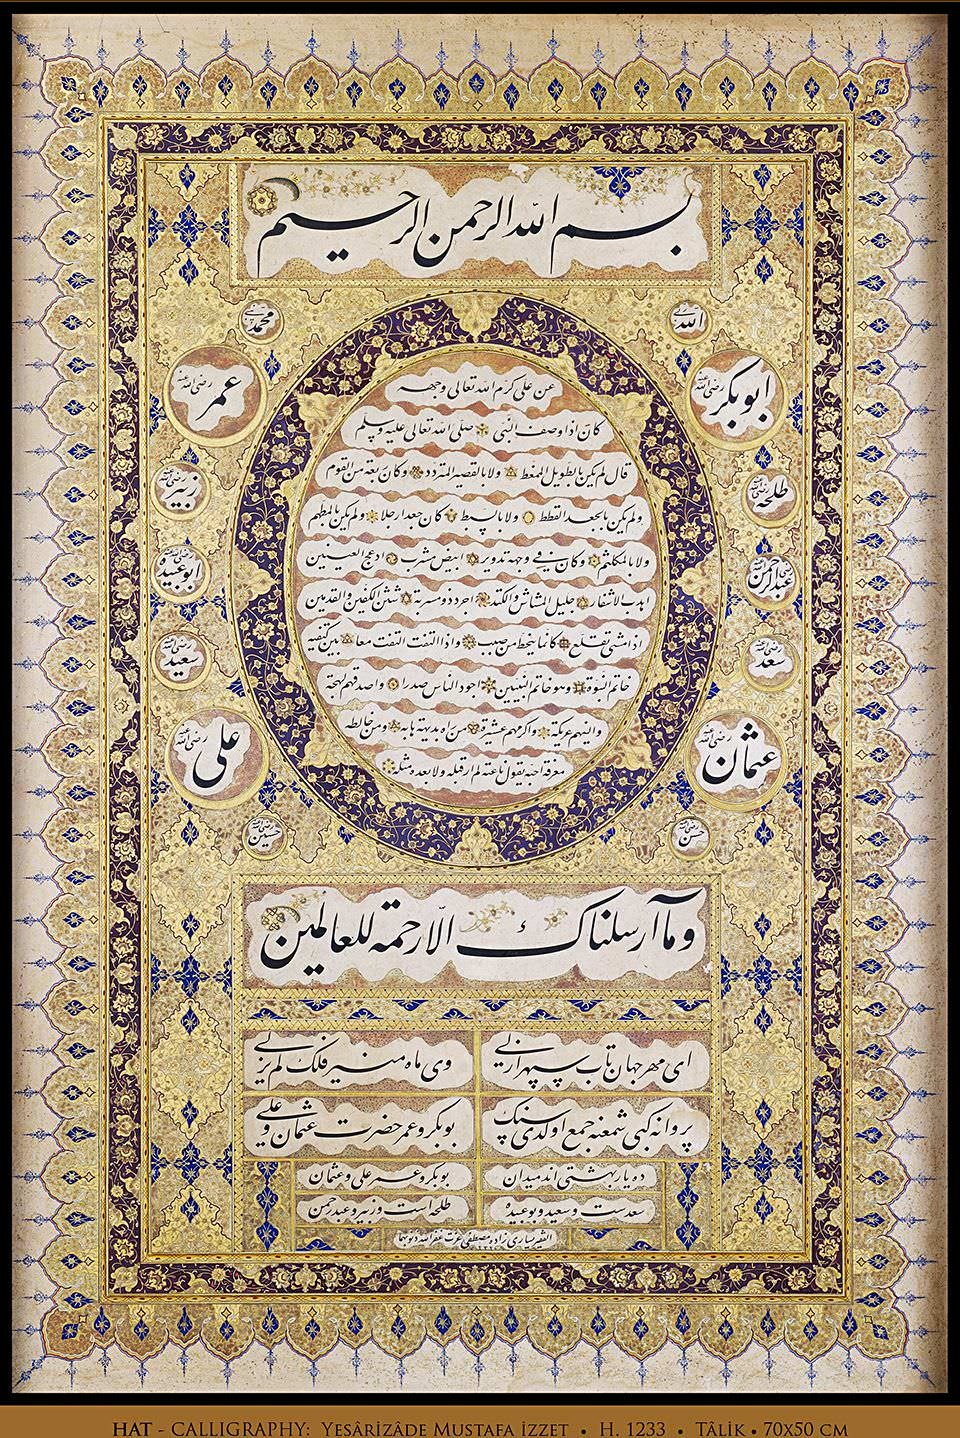 بسم الله الرحمن الرحيم
الله
محمد
ابوبكر رضى الله عنه
عمر رضى الله عنه
طلحه رضى الله عنه
زبير رضى الله عنه
عبدالرحمن رضى الله عنه
ابوعبيده رضى الله عنه
سعد
سعيد رضى الله عنه
عثمان رضى الله عنه
على رضى الله عنه
حسن رضى الله عنه
حسين رضى الله عنه
عن على كرم الله تعالى وجهه
كان اذا وصف النبى صلى الله تعالى عليه وسلم
قال لم يكن بالطويل الممغط ولا بالقصير المتردد وكان ربعة من القوم
ولم يكن بالجعد القطط ولا بالسبط كان جعدا رجلا ولم يكن بالمطهم
ولا بالمكلثم وكان فى وجهه تدوير ابيض مشرب ادعج العينين
اهدب الاشفار جليل المشاش والكتد اجرد ذو مسربة شثن الكفين والقدمين
اذا مشى تقلع كانما ينحط من صبب واذا التفت التفت معا بين كتفيه
خاتم النبوة وهو خاتم النبيين اجود الناس صدرا واصدقهم لهجة
والينهم عريكة واكرمهم عشيرة من رآه بديهة هابه ومن خالطه
معرفة احبه يقول ناعته لم ار قبله ولا بعده مثله
وما آرسلناك الا رحمة للعالمين
اى مهر جهان تاب سپهر ازلى
وى ماه منير فلك لم يزلى
پروانه كبى شمعنه جمع اولدى سنك
بوبكر و عمر حضرت عثمان و على
ده يار بهشتى اند
بوبكر و عمر على و عثمان
سعدست و سعيد و بوعبيده
طلحه است و زبير و عبدرحمن
الفقير يسارى زاده مصطفى عزت غفر الله ذنوبهما
HAT - CALLIGRAPHY: YESÂRİZÂDE MUSTAFA İZZET • H. 1233 • TÂLİK • 70X50 CM